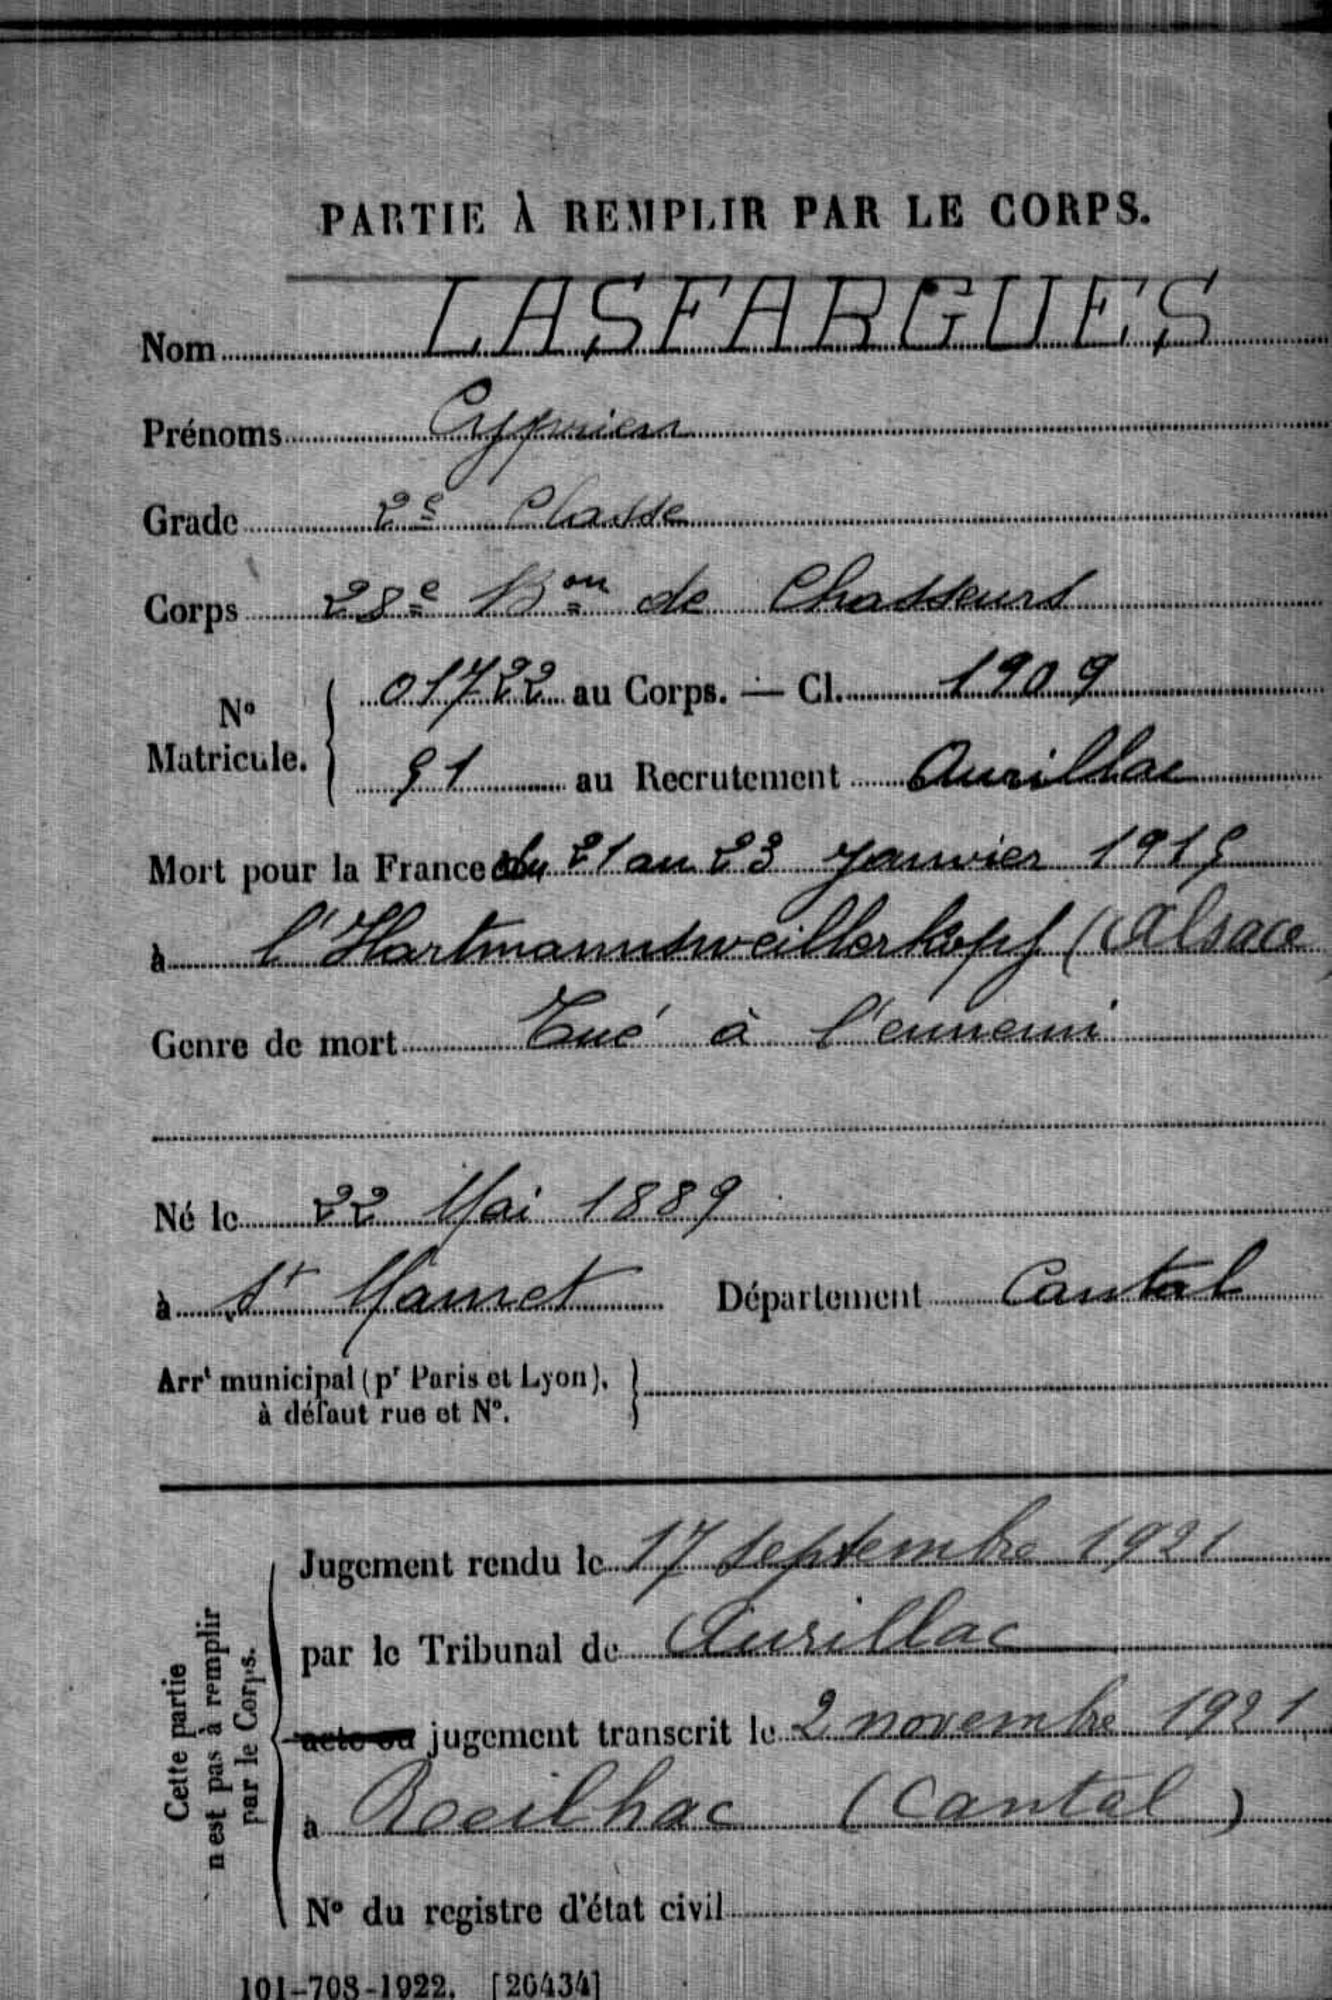 PARTIE À REMPLIR PAR LE CORPS.
Nom LASFARGUES
Prénoms Cyprien
Grade 2e Classe
Corps 28e Bon de Chasseurs
N° Matricule. { 01722 au Corps. — Cl. 1909
91 au Recrutement Aurillac
Mort pour la France du 21 au 23 Janvier 1915
à l'Hartmannsweillerkopf (Alsace
Genre de mort Tué à l'ennemi
Né le 22 Mai 1889
à St Mamet Département Cantal
Arrt municipal (pr Paris et Lyon), }
à défaut rue et N°.
Cette partie
n'est pas à remplir
par le Corps.
Jugement rendu le 17 septembre 1921
par le Tribunal de Aurillac
acte ou jugement transcrit le 2 novembre 1921
à (Cantal)
N° du registre d'état civil
101-708-1922. [26434]